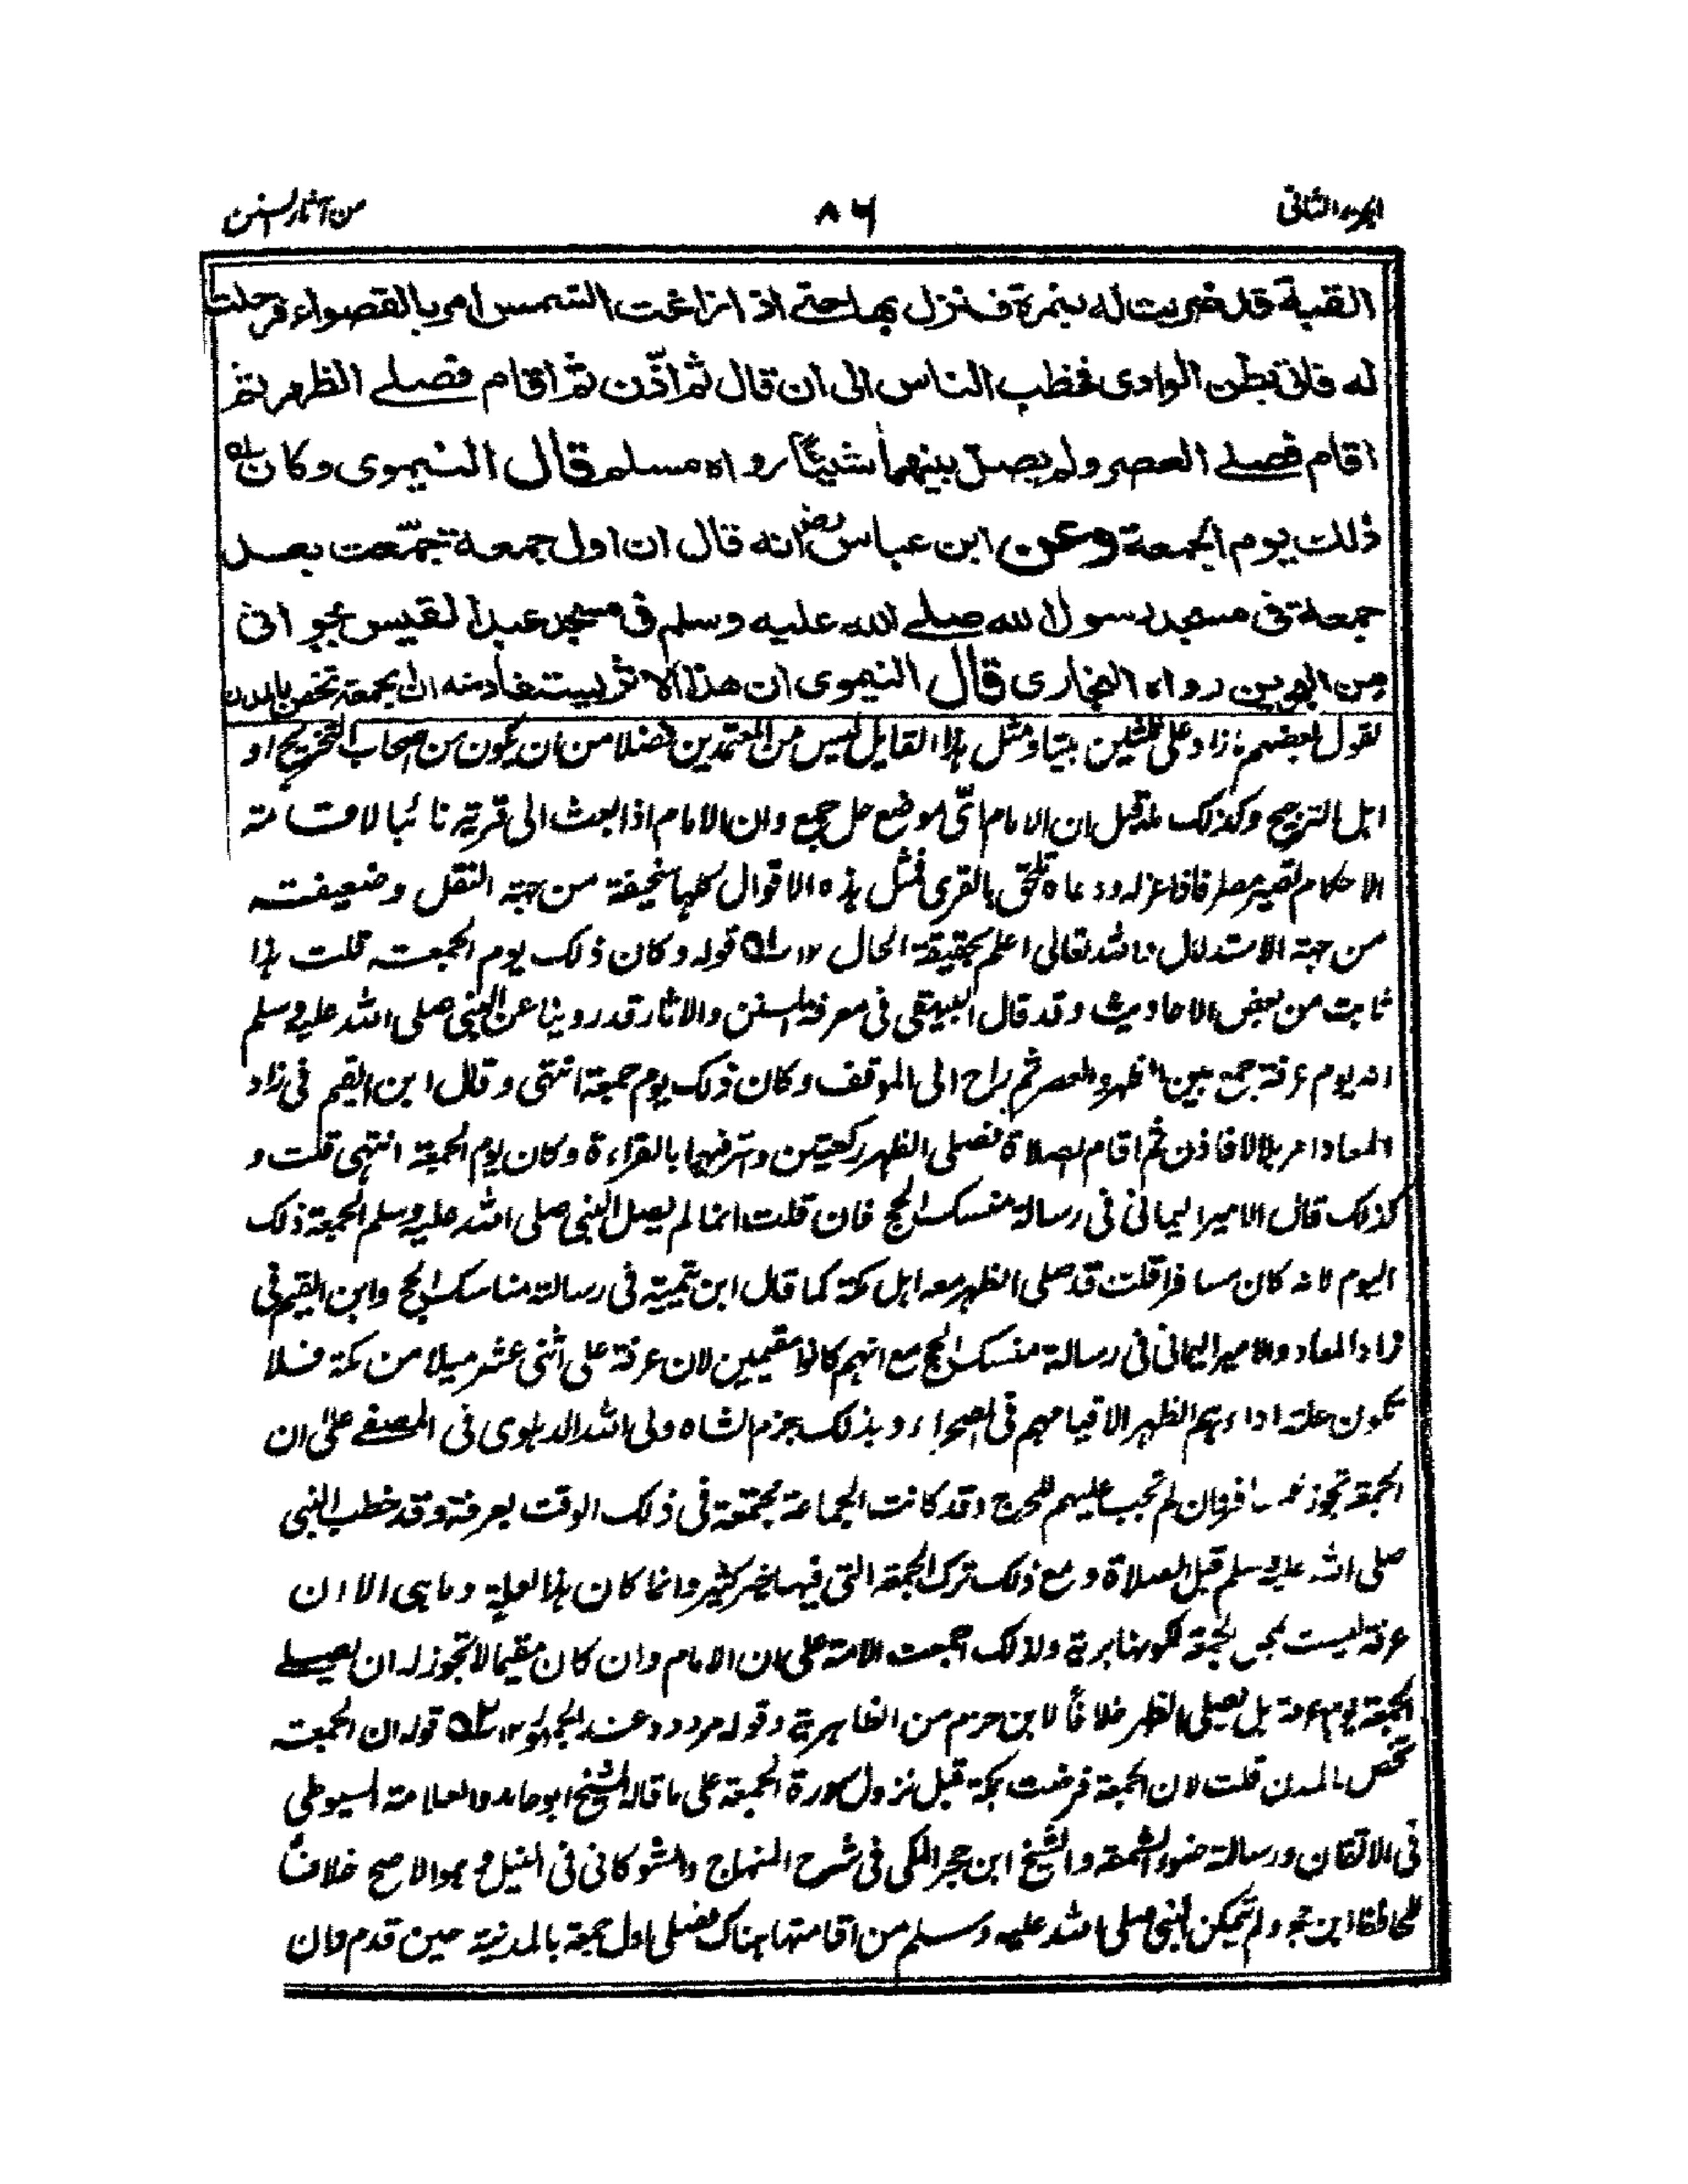 الجزء الثانى ٨٦ من آثار السنن
القبة قد ضربت له بنمرة فنزل بها حتے اذا زاغت الشمس امر بالقصواء فرحلت
له فاتى بطن الوادى فخطب الناس الى ان قال ثم اذّن ثم اقام فصلے الظهر ثم
اقام فصلے العصر ولم يصل بينهما شيئًا رواه مسلم قال النيموى وكان
ذلك يوم الجمعة وعن ابن عباس رض انه قال ان اول جمعة جمّعت بعد
جمعة فى مسجد رسول الله صلے الله عليه وسلم فى مسجد عبد القيس بجواثى
من البحرين رواه البخارى قال النيموى ان هذا الاثر يستفاد منه ان الجمعة تختص بالمدن
لقول بعضهم ما زاد على ثلثين بيتا ومثل هذا القايل ليس من المعتمدين فضلا من ان يكون من اصحاب التخريج او
اهل الترجيح وكذلك ما قيل ان الامام اىّ موضع حل جمع وان الامام اذا بعث الى قرية نائبا لاقامة
الاحكام تصير مصرا فاذا عزله ودعاه تلحق بالقرى فمثل هذه الاقوال كلها سخيفة من جهة النقل وضعيفة
من جهة الاستدلال والله تعالى اعلم بحقيقة الحال ١٢ ١ـه قوله وكان ذلك يوم الجمعة قلت هذا
ثابت من بعض الاحاديث وقد قال البيهقى فى معرفة السنن والاثار قد روينا عن النبى صلى الله عليه وسلم
انه يوم عرفة جمع بين الظهر والعصر ثم راح الى الموقف وكان ذلك يوم جمعة انتهى وقال ابن القيم فى زاد
المعاد امر بلالا فاذن ثم اقام الصلاة فصلى الظهر ركعتين واسر فيهما بالقراءة وكان يوم الجمعة انتهى قلت و
كذلك قال الامير اليمانى فى رسالة منسك الحج فان قلت انما لم يصل النبى صلى الله عليه وسلم الجمعة ذلك
اليوم لانه كان مسافرا قلت قد صلى الظهر معه اهل مكة كما قال ابن تيمية فى رسالة مناسك الحج وابن القيم فى
زاد المعاد والامير اليمانى فى رسالة منسك الحج مع انهم كانوا مقيمين لان عرفة على اثنى عشر ميلا من مكة فلا
تكون علة اداءهم الظهر الا قيامهم فى الصحراء وبذلك جزم الشاه ولى الله الدهلوى فى المصفے على ان
الجمعة تجوز للمسافر وان لم تجب عليهم للحرج وقد كانت الجماعة مجتمعة فى ذلك الوقت بعرفة وقد خطب النبى
صلى الله عليه وسلم قبل الصلاة ومع ذلك ترك الجمعة التى فيها خير كثير وانما كان هذا لعلة وما هى الا ان
عرفة ليست بمحل الجمعة لكونها برية ولذلك اجمعت الامة على ان الامام وان كان مقيما لا تجوز له ان يصلے
الجمعة يوم عرفة بل يصلى الظهر خلافًا لابن حزم من الظاهرية وقوله مردود عند الجمهور ١٢ ٢ـه قوله ان الجمعة
تختص بالمدن قلت لان الجمعة فرضت بمكة قبل نزول سورة الجمعة على ما قاله الشيخ ابو حامد والعلامة السيوطى
فى الاتقان ورسالته ضوء الشمعة والشيخ ابن حجر المكى فى شرح المنهاج والشوكانى فى النيل وهو الاصح خلافًا
للحافظ ابن حجر ولم يتمكن النبى صلى الله عليه وسلم من اقامتها هناك فصلى اول جمعة بالمدينة حين قدم وان